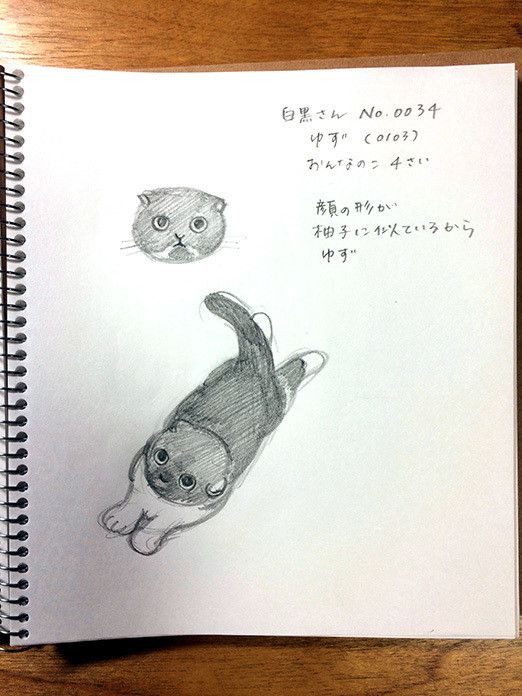 白黒さん No.0034
ゆず (0103)
おんなのこ 4さい
顔の形が
柚子に似ているから
ゆず